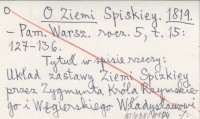 O Ziemi Spiskiey. 1819.
- Pam. Warsz. rocz. 5, t. 15:
127-136.
Tytuł w spisie rzeczy:
Układ zastawy Ziemi Spizkiey
przez Zygmunta Króla Rzymskie-
go i Węgierskiego Władysławowi